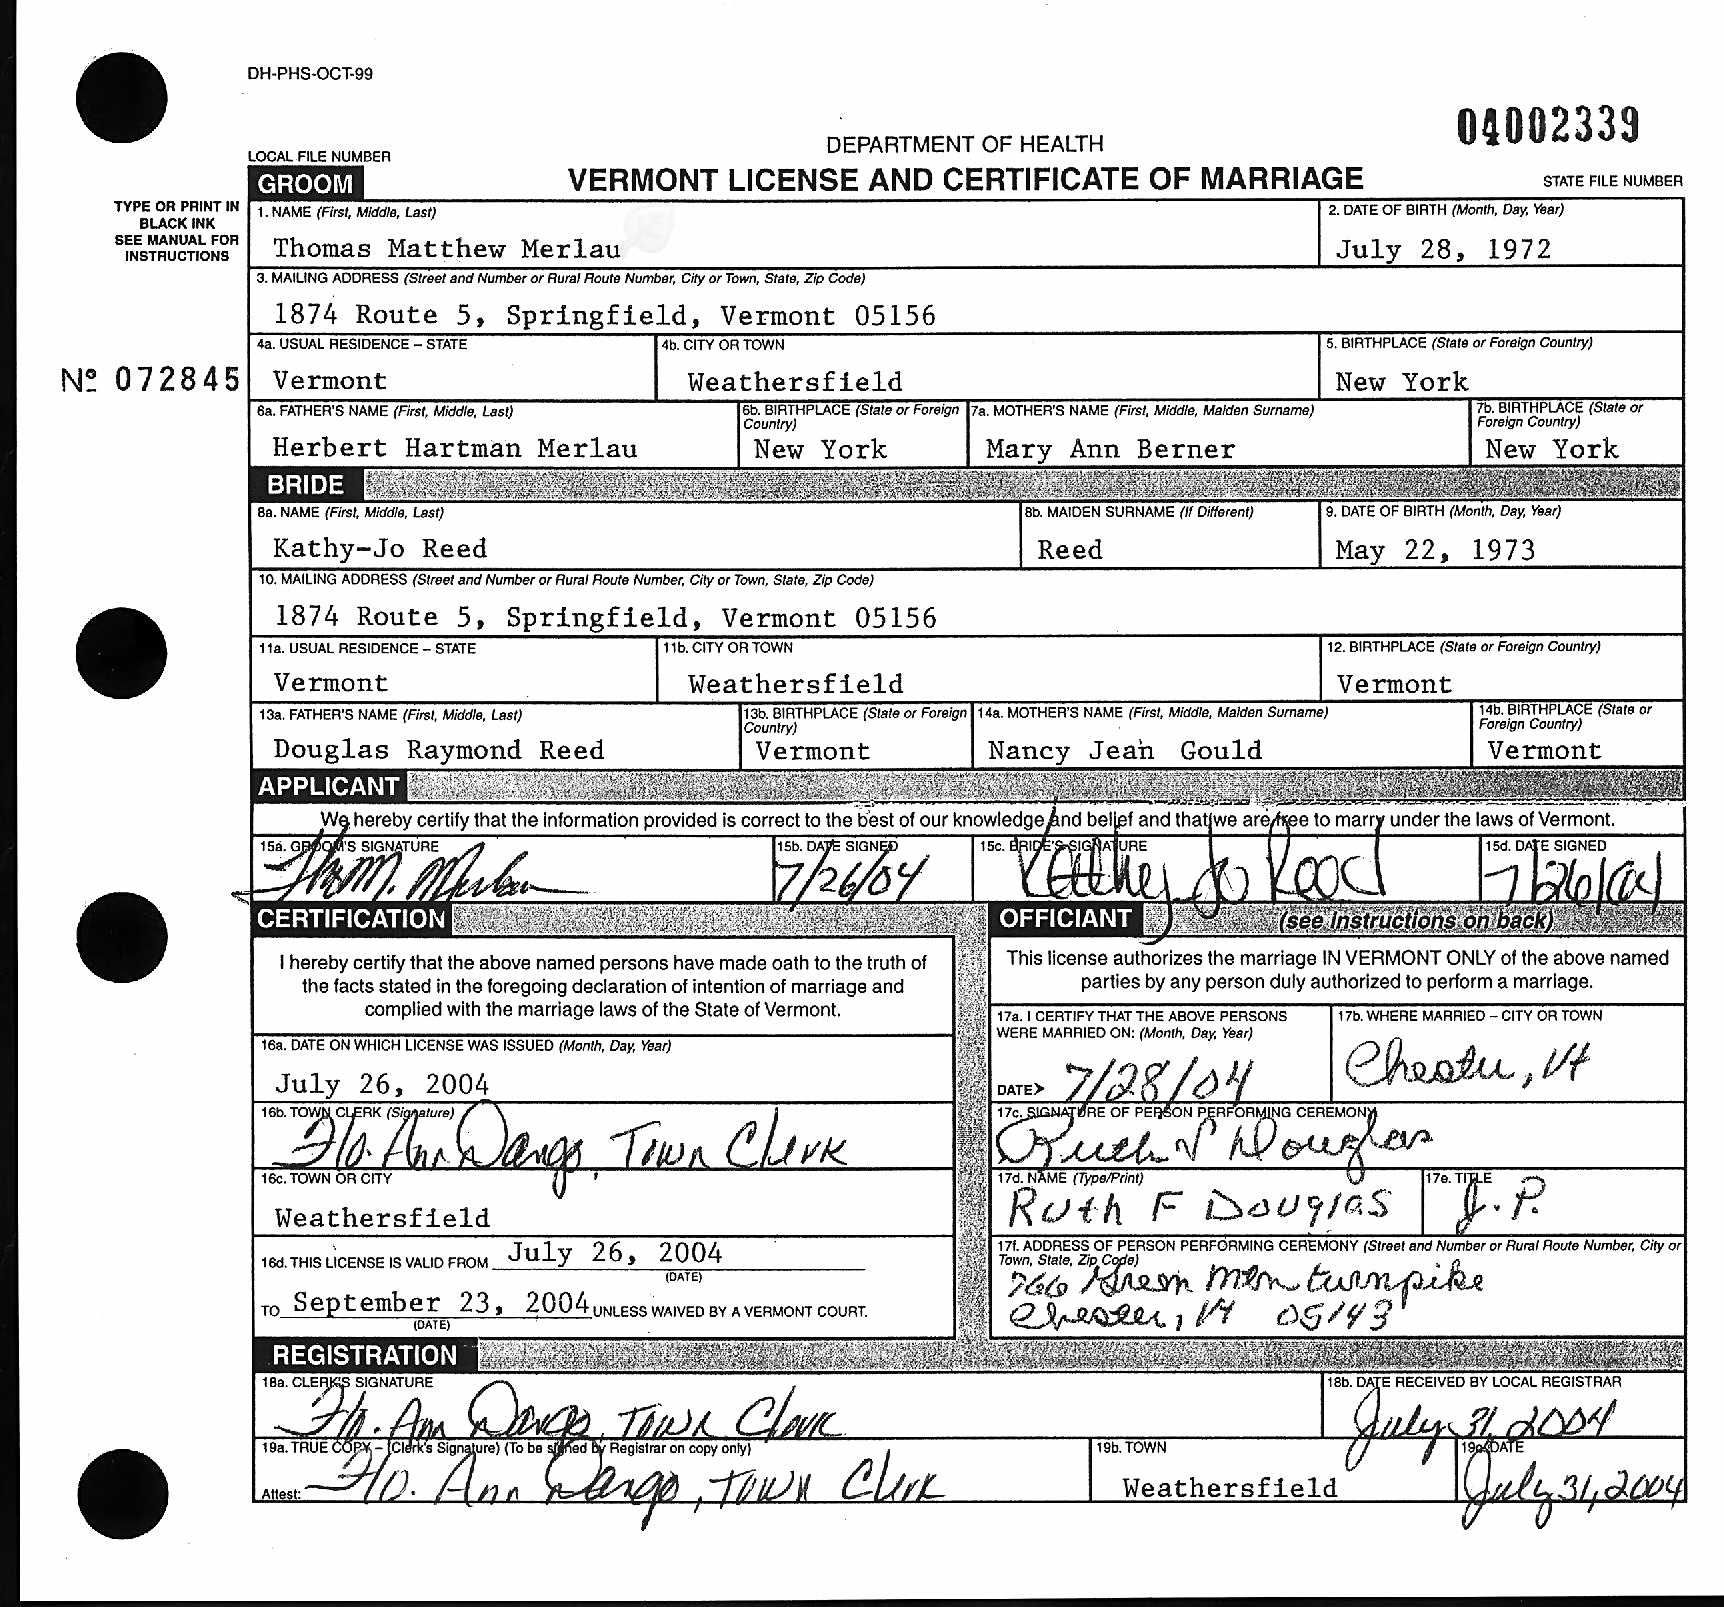 DH-PHS-OCT-99
04002339
DEPARTMENT OF HEALTH
LOCAL FILE NUMBER
GROOM
VERMONT LICENSE AND CERTIFICATE OF MARRIAGE
STATE FILE NUMBER
TYPE OR PRINT IN
BLACK INK
SEE MANUAL FOR
INSTRUCTIONS
1. NAME (First, Middle, Last)
2. DATE OF BIRTH (Month, Day, Year)
Thomas Matthew Merlau
July 28, 1972
3. MAILING ADDRESS (Street and Number or Rural Route Number, City or Town, State, Zip Code)
1874 Route 5, Springfield, Vermont 05156
4a. USUAL RESIDENCE – STATE
4b. CITY OR TOWN
5. BIRTHPLACE (State or Foreign Country)
Nº 072845
Vermont
Weathersfield
New York
6a. FATHER'S NAME (First, Middle, Last)
6b. BIRTHPLACE (State or Foreign
Country)
7a. MOTHER'S NAME (First, Middle, Maiden Surname)
7b. BIRTHPLACE (State or
Foreign Country)
Herbert Hartman Merlau
New York
Mary Ann Berner
New York
BRIDE
8a. NAME (First, Middle, Last)
8b. MAIDEN SURNAME (If Different)
9. DATE OF BIRTH (Month, Day, Year)
Kathy-Jo Reed
Reed
May 22, 1973
10. MAILING ADDRESS (Street and Number or Rural Route Number, City or Town, State, Zip Code)
1874 Route 5, Springfield, Vermont 05156
11a. USUAL RESIDENCE – STATE
11b. CITY OR TOWN
12. BIRTHPLACE (State or Foreign Country)
Vermont
Weathersfield
Vermont
13a. FATHER'S NAME (First, Middle, Last)
13b. BIRTHPLACE (State or Foreign
Country)
14a. MOTHER'S NAME (First, Middle, Maiden Surname)
14b. BIRTHPLACE (State or
Foreign Country)
Douglas Raymond Reed
Vermont
Nancy Jean Gould
Vermont
APPLICANT
We hereby certify that the information provided is correct to the best of our knowledge and belief and that we are free to marry under the laws of Vermont.
15a. GROOM'S SIGNATURE
15b. DATE SIGNED
15c. BRIDE'S SIGNATURE
15d. DATE SIGNED
Tho M. Merlau
7/26/04
Kathy Jo Reed
7/26/04
CERTIFICATION
I hereby certify that the above named persons have made oath to the truth of
the facts stated in the foregoing declaration of intention of marriage and
complied with the marriage laws of the State of Vermont.
16a. DATE ON WHICH LICENSE WAS ISSUED (Month, Day, Year)
July 26, 2004
16b. TOWN CLERK (Signature)
Flo. Ann Dango, Town Clerk
16c. TOWN OR CITY
Weathersfield
16d. THIS LICENSE IS VALID FROM July 26, 2004
(DATE)
TO September 23, 2004 UNLESS WAIVED BY A VERMONT COURT.
(DATE)
OFFICIANT (see instructions on back)
This license authorizes the marriage IN VERMONT ONLY of the above named
parties by any person duly authorized to perform a marriage.
17a. I CERTIFY THAT THE ABOVE PERSONS
WERE MARRIED ON: (Month, Day, Year)
17b. WHERE MARRIED – CITY OR TOWN
DATE➤ 7/28/04
Chester, Vt
17c. SIGNATURE OF PERSON PERFORMING CEREMONY
Ruth F Douglas
17d. NAME (Type/Print)
17e. TITLE
Ruth F Douglas
J.P.
17f. ADDRESS OF PERSON PERFORMING CEREMONY (Street and Number or Rural Route Number, City or
Town, State, Zip Code)
766 Green Mtn turnpike
Chester, Vt 05143
REGISTRATION
18a. CLERK'S SIGNATURE
18b. DATE RECEIVED BY LOCAL REGISTRAR
Flo. Ann Dango, Town Clerk
July 31, 2004
19a. TRUE COPY – (Clerk's Signature) (To be signed by Registrar on copy only)
19b. TOWN
19c. DATE
Attest: Flo. Ann Dango, Town Clerk
Weathersfield
July 31, 2004